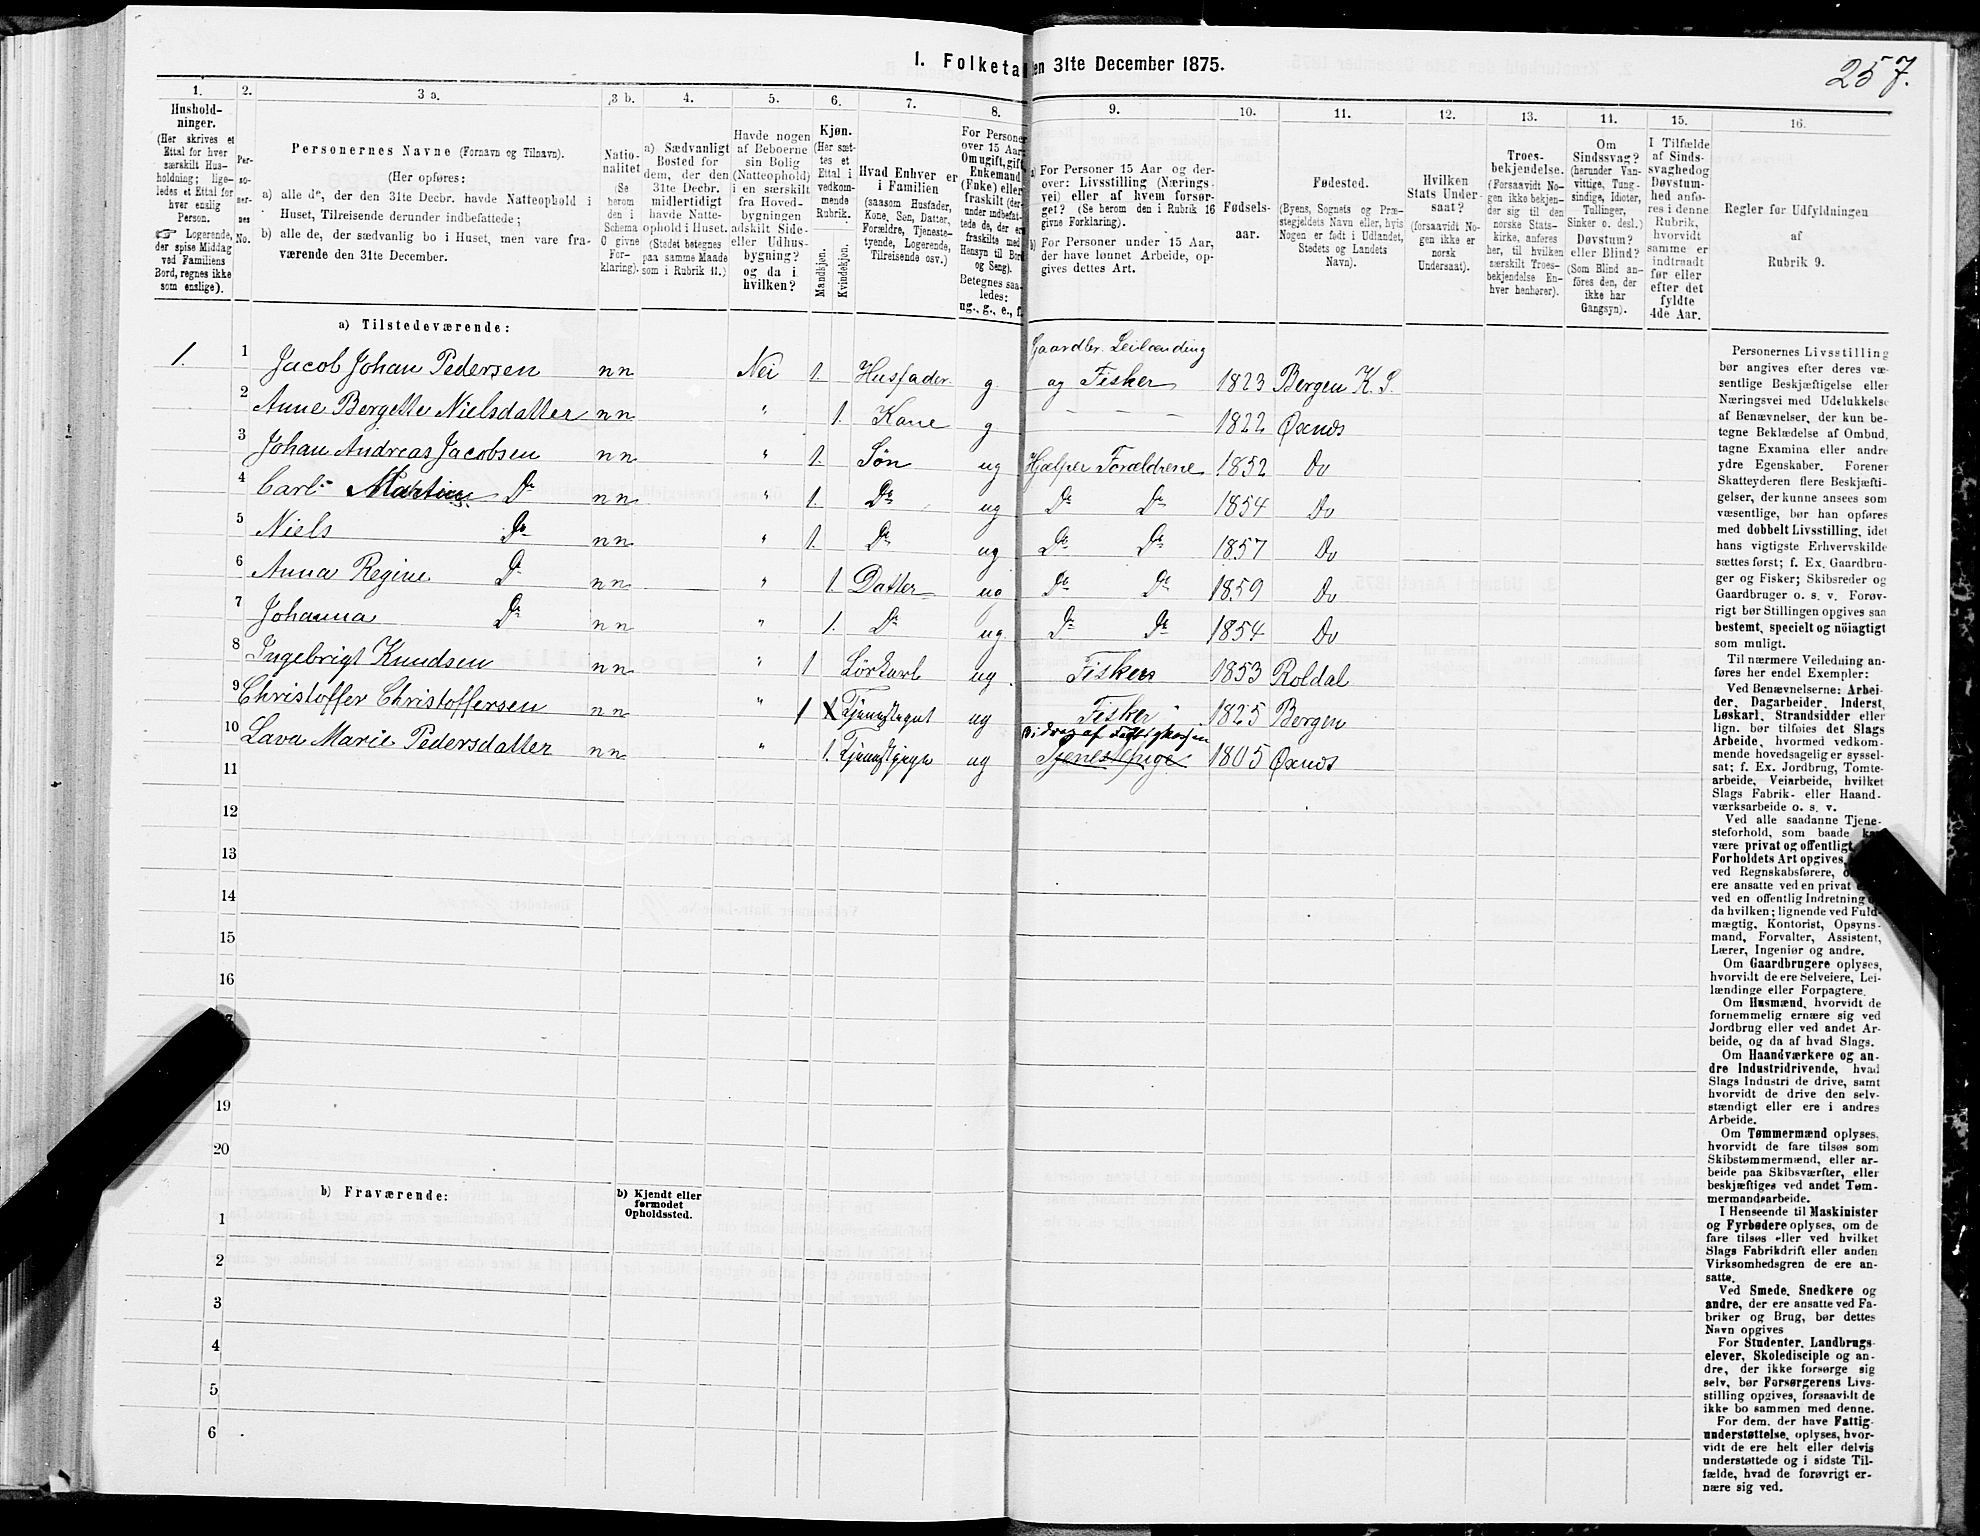 257.
1. Folketal den 31te December 1875.
1. 2. 3 a. 3 b. 4. 5. 6. 7. 8. 9. 10. 11. 12. 13. 11. 15. 16.
Hushold-
ninger.
(Her skrives et
Ettal for hver
særskilt Hus-
holdning; lige-
ledes et Ettal for
hver enslig
Person.
☞ Logerende,
der spise Middag
ved Familiens
Bord, regnes ikke
som enslige).
Per-
so-
ner-
nes
No.
Personernes Navne (Fornavn og Tilnavn).
(Her opføres:
a) alle de, der den 31te Decbr. havde Natteophold i
Huset, Tilreisende derunder indbefattede;
b) alle de, der sædvanlig bo i Huset, men vare fra-
værende den 31te December.
Natio-
nalitet
(Se
herom
den i
Schema
O givne
For-
klaring).
a) Sædvanligt
Bosted for
dem, der den
31te Decbr.
midlertidigt
havde Natte-
ophold i Huset.
(Stedet betegnes
paa samme Maade
som i Rubrik 11.)
Havde nogen
af Beboerne
sin Bolig
(Natteophold)
i en særskilt
fra Hoved-
bygningen
adskilt Side-
eller Udhus-
bygning?
og da i
hvilken?
Kjøn.
(Her sæt-
tes et
Ettal i
vedkom-
mende
Rubrik.
Mandkjøn.
Kvindekjøn.
Hvad Enhver er
i Familien
(saasom Husfader,
Kone, Søn, Datter,
Forældre, Tjeneste-
tyende, Logerende,
Tilreisende osv.)
For Personer
over 15 Aar:
Om ugift, gift,
Enkemand
(Enke) eller
fraskilt (der-
under indbefat-
tede de, der ere
fraskilte med
Hensyn til Bord
og Seng).
Betegnes saa-
ledes:
ug., g., e., f.
a) For Personer 15 Aar og der-
over: Livsstilling (Nærings-
vei) eller af hvem forsør-
get? (Se herom den i Rubrik 16
givne Forklaring).
b) For Personer under 15 Aar,
der have lønnet Arbeide, op-
gives dettes Art.
Fødsels-
aar.
Fødested.
(Byens, Sognets og Præ-
stegjeldets Navn eller, hvis
Nogen er født i Udlandet,
Stedets og Landets
Navn).
Hvilken
Stats Under-
saat?
(forsaavidt No-
gen ikke er
norsk
Undersaat).
Troes-
bekjendelse.
(Forsaavidt No-
gen ikke bekjen-
der sig til den
norske Stats-
kirke, anføres
her, til hvilken
særskilt Troes-
bekjendelse En-
hver henhører).
Om
Sindssvag?
(herunder Van-
vittige, Tung-
sindige, Idioter,
Tullinger,
Sinker o. desl.)
Døvstum?
eller Blind?
(Som Blind an-
føres den, der
ikke har
Gangsyn).
I Tilfælde
af Sinds-
svaghed og
Døvstum-
hed anfø-
res i denne
Rubrik,
hvorvidt
samme er
indtraadt
før eller
efter det
fyldte
4de Aar.
Regler for Udfyldningen
af
Rubrik 9.
a) Tilstedeværende:
Gaardbr. Leilænding
1. 1 Jacob Johan Pedersen nn Nei 1. Husfader g. og Fisker 1823 Bergen K. S.
2 Anne Bergette Nielsdatter nn " 1. Kone g — — — 1822 Øxnæs
3 Johan Andreas Jacobsen nn " 1. Søn ug Hjælper Forældrene 1852 Do
4 Carl Martin Do nn " 1. Do ug Do Do 1854 Do
5 Niels Do nn " 1. Do ug Do Do 1857 Do
6 Anna Regine Do nn " 1. Datter ug Do Do 1859 Do
7 Johanna Do nn " 1. Do ug. Do Do 1854 Do
8 Ingebrigt Knudsen nn " 1 Løskarl ug. Fisker 1853 Roldal
9 Christoffer Christoffersen nn " 1 ug Fisker 1825 Bergen
10 Lava Marie Pedersdatter nn " 1. ug Tjenestpige 1805 Øxnæs
11
12
13
14
15
16
19
20
b) Fraværende:
b) Kjendt eller
formodet
Opholdssted.
1
2
3
4
5
6
Personernes Livsstilling
bør angives efter deres væ-
sentlige Beskjæftigelse eller
Næringsvei med Udelukkelse
af Benævnelser, der kun be-
tegne Beklædelse af Ombud,
tagne Examina eller andre
ydre Egenskaber. Forener
Skatteyderen flere Beskjæfti-
gelser, der kunne ansees som
væsentlige, bør han opføres
med dobbelt Livsstilling, idet
hans vigtigste Erhvervskilde
sættes først; f. Ex. Gaardbru-
ger og Fisker; Skibsreder og
Gaardbruger o. s. v. Forøv-
rigt bør Stillingen opgives saa
bestemt, specielt og nöiagtigt
som muligt.
Til nærmere Veiledning an-
føres her endel Exempler:
Ved Benævnelserne: Arbei-
der, Dagarbeider, Inderst,
Løskarl, Strandsidder eller
lign. bør tilføies det Slags
Arbeide, hvormed vedkom-
mende hovedsagelig er syssel-
sat; f. Ex. Jordbrug, Tomte-
arbeide, Veiarbeide, hvilket
Slags Fabrik- eller Haand-
værksarbeide o. s. v.
Ved alle saadanne Tjene-
steforhold, som baade kan
være privat og offentligt,
Forholdets Art opgives,
ved Regnskabsførere,
ere ansatte ved en privat
ved en offentlig Indretning
da hvilken; lignende ved Fuld-
mægtig, Kontorist, Opsyns-
mand, Forvalter, Assistent,
Lærer, Ingeniør og andre.
Om Gaardbrugere oplyses,
hvorvidt de ere Selveiere, Lei-
lændinge eller Forpagtere.
Om Husmænd, hvorvidt de
fornemmelig ernære sig ved
Jordbrug eller ved andet Ar-
beide, og da af hvad Slags.
Om Haandværkere og an-
dre Industridrivende, hvad
Slags Industri de drive, samt
hvorvidt de drive den selv-
stændigt eller ere i andres
Arbeide.
Om Tømmermænd oplyses,
hvorvidt de fare tilsøs som
Skibstømmermænd, eller ar-
beide paa Skibsværfter, eller
beskjæftiges ved andet Tøm-
mermandsarbeide.
I Henseende til Maskinister
og Fyrbødere oplyses, om de
fare tilsøs eller ved hvilket
Slags Fabrikdrift eller anden
Virksomhedsgren de ere an-
satte.
Ved Smede, Snedkere og
andre, der ere ansatte ved Fa-
briker og Brug, bør dettes
Navn opgives
For Studenter, Landbrugs-
elever, Skoledisciple og an-
dre, der ikke forsørge sig
selv, bør Forsørgerens Livs-
stilling opgives, forsaavidt de
ikke bo sammen med denne.
For dem, der have Fattig-
understøttelse, oplyses, hvor-
vidt de ere helt eller delvis
understøttede og i sidste Til-
fælde, hvad de forøvrigt er-
nære sig ved.